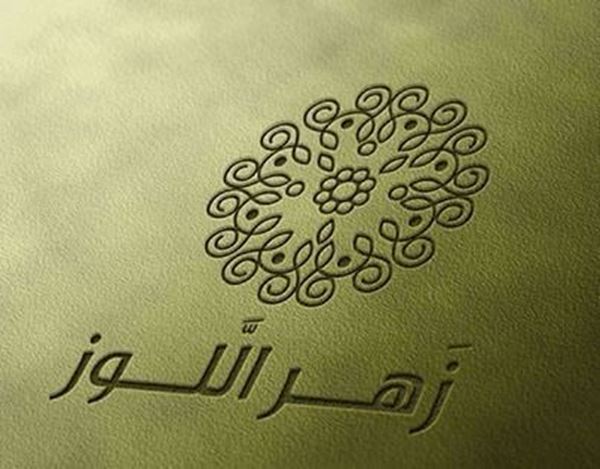 زَهر اللَّوز